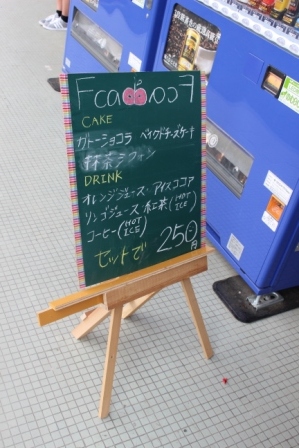 CAKE
ガトーショコラ ベイクドチーズケーキ
抹茶シフォン
DRINK
オレンジジュース・アイスココア
リンゴジュース・紅茶(HOT ICE)
コーヒー(HOT ICE)
セットで 250円